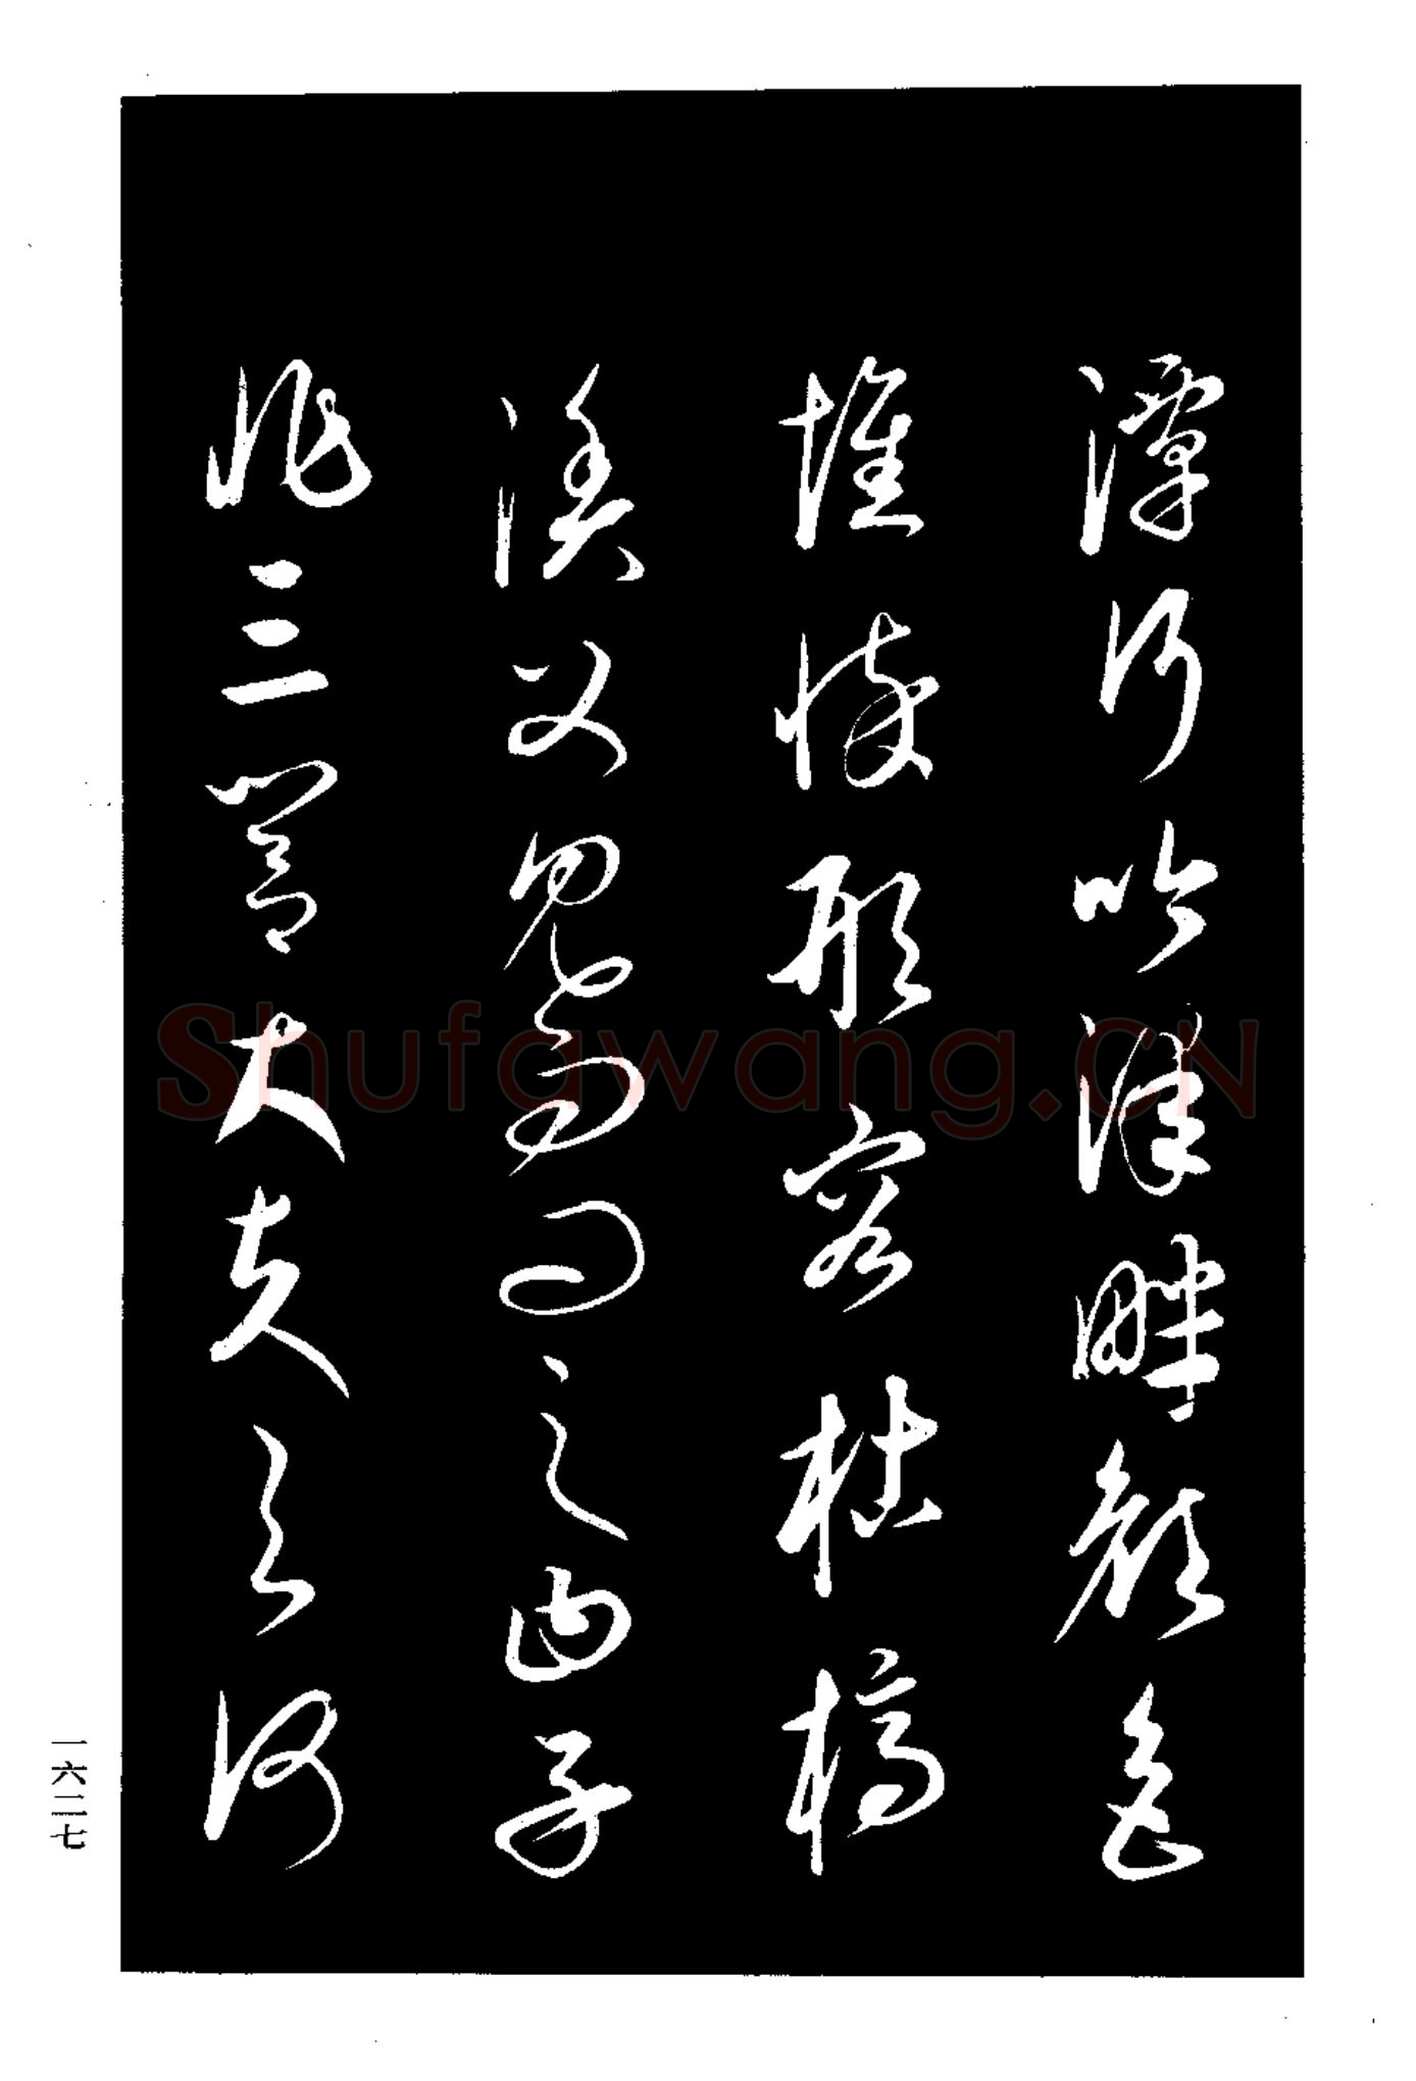 潭行吟澤畔顏色
憔悴形容枯槁
漁父見而問之曰子
非三閭大夫與何
一六二七
Shufawang.CN